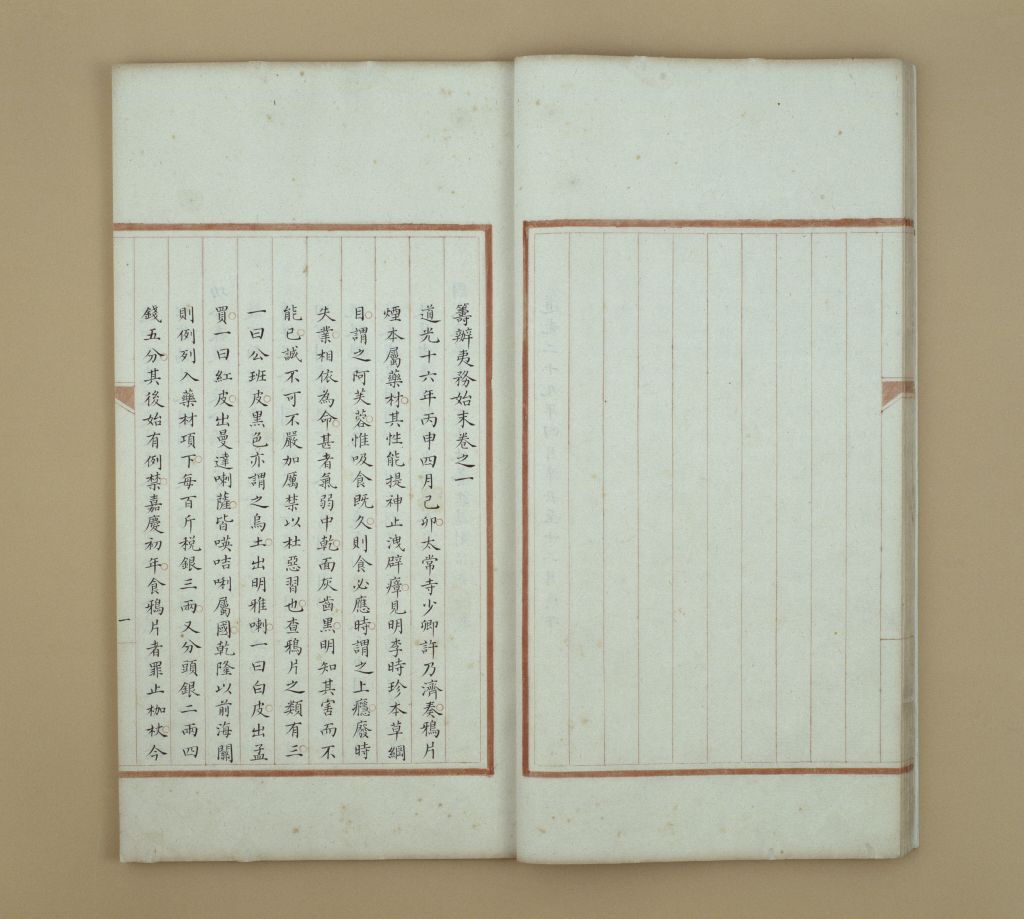 籌辦夷務始末卷之一
道光十六年丙申四月己卯太常寺少卿許乃濟奏鴉片
煙本屬藥材其性能提神止洩辟瘴見明李時珍本草綱
目謂之阿芙蓉惟吸食既久則食必應時謂之上癮廢時
失業相依為命甚者氣弱中乾面灰齒黑明知其害而不
能已誠不可不嚴加厲禁以杜惡習也查鴉片之類有三
一曰公班皮黑色亦謂之烏土出明雅喇一曰白皮出孟
買一曰紅皮出曼達喇薩皆𠸄咭唎屬國乾隆以前海關
則例列入藥材項下每百斤稅銀三兩又分頭銀二兩四
錢五分其後始有例禁嘉慶初年食鴉片者罪止枷杖今
一